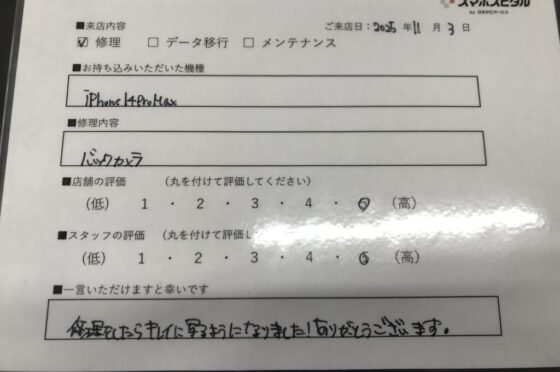 スマホスピタル
■来店内容
ご来店日 2025年11月3日
☑ 修理 □ データ移行 □ メンテナンス
■お持ち込みいただいた機種
iPhone14ProMax
■修理内容
バックカメラ
■店舗の評価 (丸を付けて評価してください)
(低) 1 ・ 2 ・ 3 ・ 4 ・ 5 (高)
■スタッフの評価 (丸を付けて評価し
(低) 1 ・ 2 ・ 3 ・ 4 ・ 5 (高)
■一言いただけますと幸いです
修理をしたらキレイに写るようになりました!ありがとうございます。